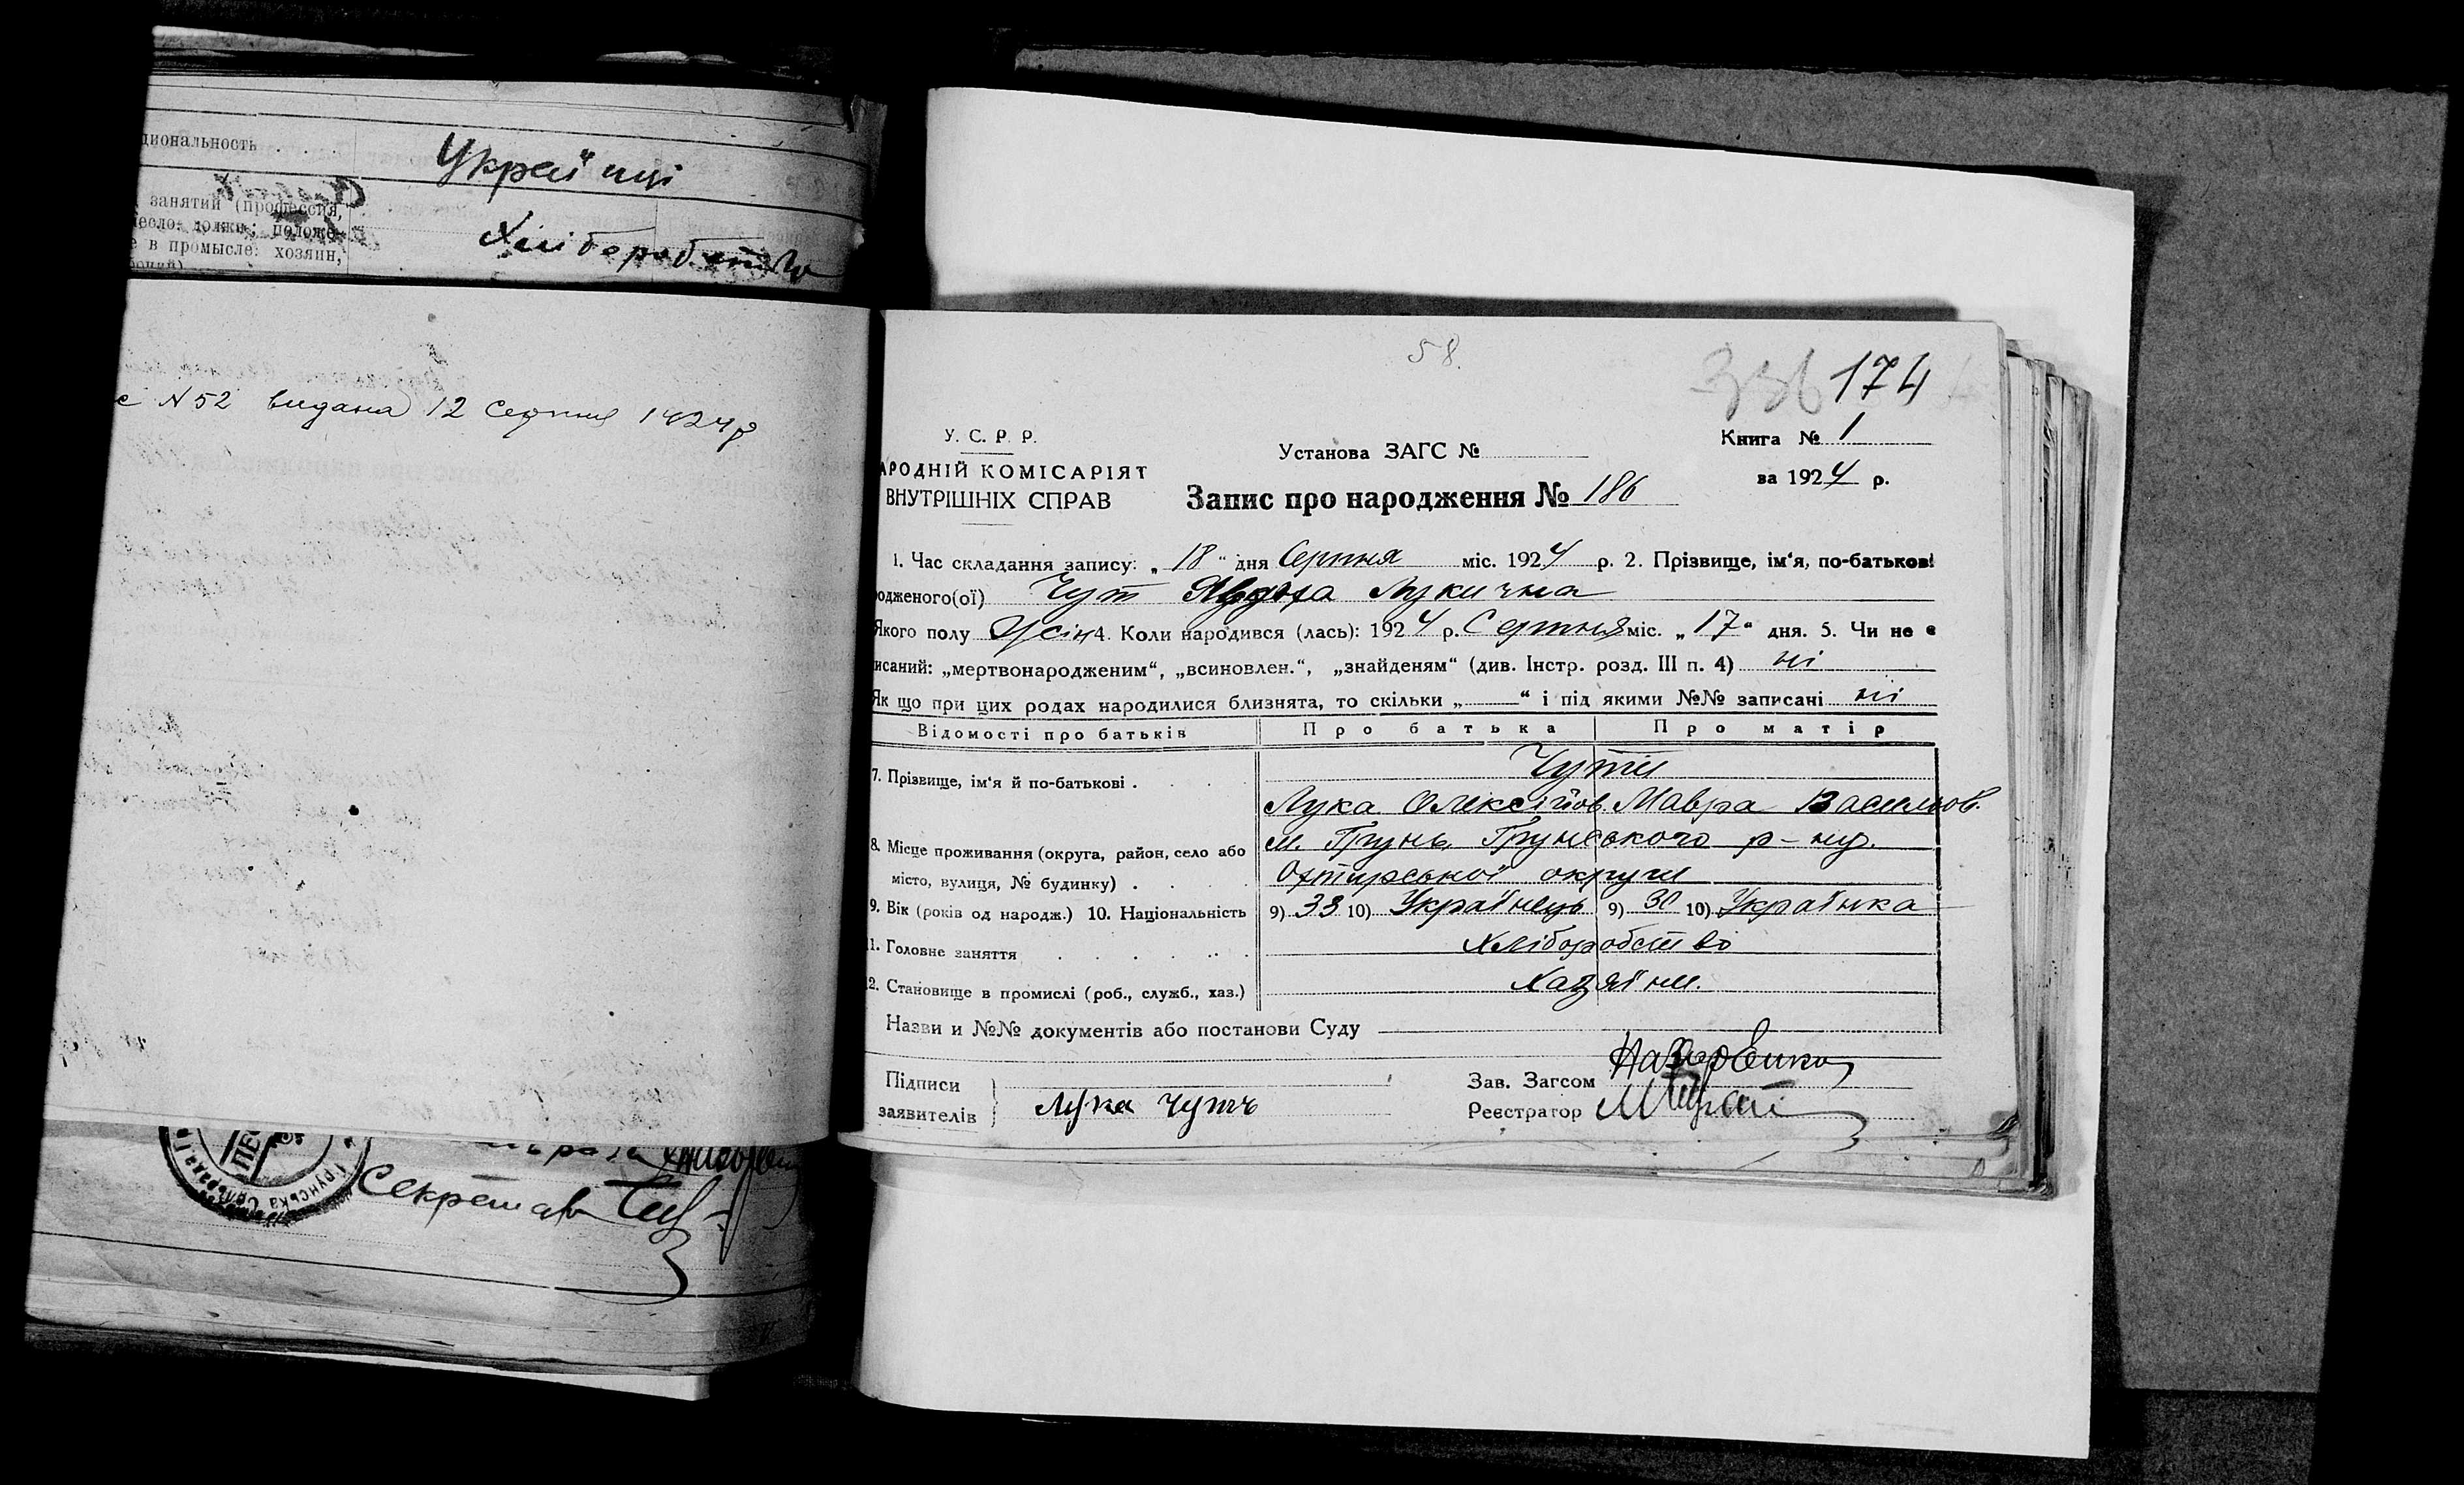 циональность . . .
Украйнці
занятий (профессия,
есло: должн; положе-
е в промысле: хозяин,
Хліборобство
є N 52 видана 12 Серпня 1924 р
Грунська
Секретар
58.
336 174
У. С. Р. Р.
АРОДНІЙ КОМІСАРІЯТ
ВНУТРІШНІХ СПРАВ
Установа ЗАГС №
Книга № 1
за 1924 р.
Запис про народження № 186
1. Час складання запису: „ 18 “ дня Серпня міс. 1924 р. 2. Прізвище, ім‘я, по-батькові
одженого(ої) Чут Явдоха Лукична
Якого полу Жісін 4. Коли народився (лась): 1924 р. Серпня міс. „ 17 “ дня. 5. Чи не є
исаний: „мертвонародженим“, „всиновлен.“, „знайденям“ (див. Інстр. розд. III п. 4) ні
Як що при цих родах народилися близнята, то скільки „ “ і під якими №№ записані ні
Відомості про батьків Про батька Про матір
7. Прізвище, ім‘я й по-батькові . . . Чути
Лука Олексійов. Мавра Васильов.
8. Місце проживання (округа, район, село або м. Грунь Грунського р-ну.
місто, вулиця, № будинку) . . . Охтирської округи
9. Вік (років од народж.) 10. Національність 9) 33 10) Українець 9) 30 10) Українка
11. Головне заняття . . . Хліборобство
12. Становище в промислі (роб., служб., хаз.) Хазяїни.
Назви и №№ документів або постанови Суду
Підписи
заявителів Лука Чуть
Зав. Загсом Назаренко
Реєстратор